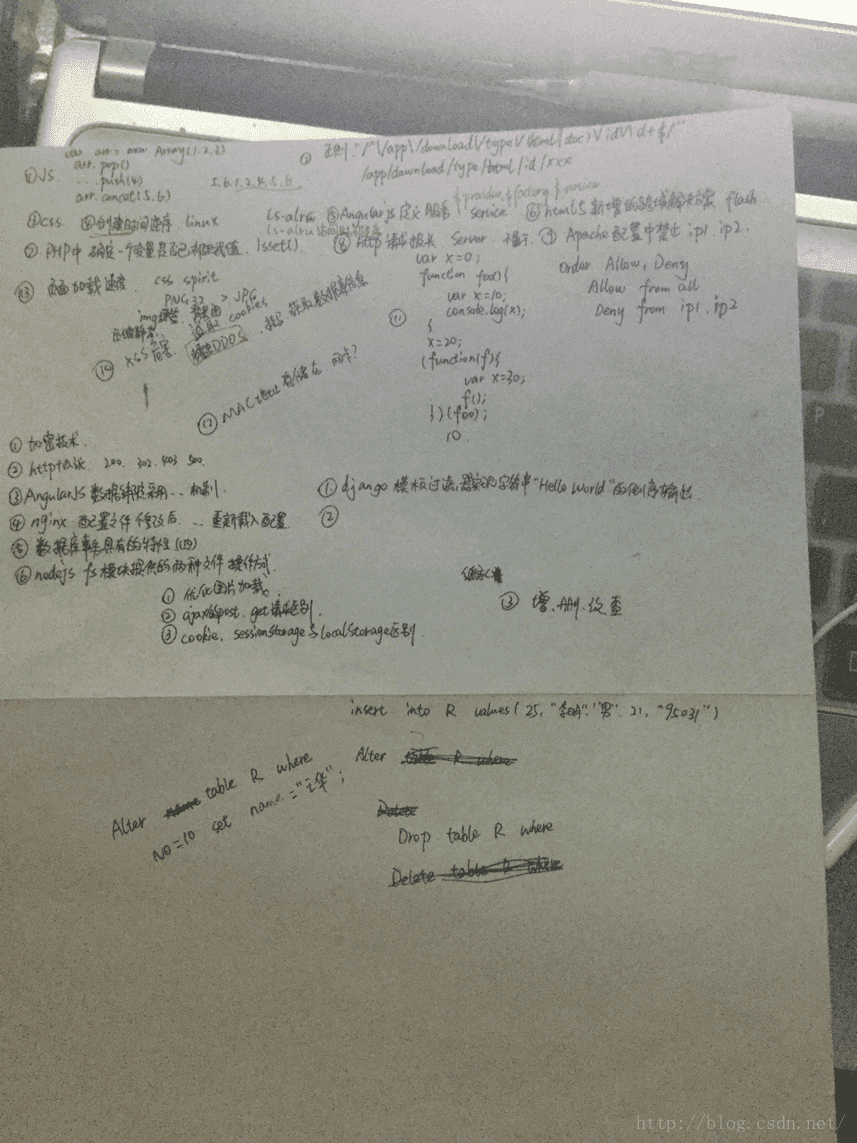 ① JS. var arr = new Array(1.2.3)
arr.pop()
... push(4)
arr.concat(5.6)
5.6.1.2.4.5.6
② 正则 "/^\/app\/download\/type\/(html|doc)\/id\/\d+$/"
/app/download/type/html/id/xxx
③ css ④ 创建时间逆序 linux ls-alru
ls-alru 访问时间逆序
⑤ Angularjs 定义服务 service
$provider, $factory, $service
⑥ html5 新增的跨域解决方案 flash
⑦ PHP中 确定一个变量是否已 赋值. Isset().
⑧ http 请求报头 Server
⑨ Apache 配置中禁止 ip1. ip2.
Order Allow, Deny
Allow from all
Deny from ip1. ip2
⑪
var x=0;
function foo(){
var x=10;
console.log(x);
}
x=20;
(function(f){
var x=30;
f();
})(foo);
10.
⑬ 页面加载速度. css spirit
PNG32 > JPG
⑩ XSS 危害. 盗取 cookies
DDOS
获取数据库信息
⑫ MAC地址 存储在 网卡?
① 加密技术.
② http协议. 200. 302. 403 500.
③ AngularJS 数据绑定采用 ... 机制.
④ nginx 配置文件修改后 ... 重新载入配置
⑤ 数据库事务具有的特性(四)
⑥ nodejs fs模块提供的两种文件操作方式
① 优化图片加载.
② ajax的post. get请求区别.
③ cookie. sessionStorage与localStorage区别.
① django 模板过滤器实现字符串"Hello World"的倒序输出.
②
③ 增. 删. 改 查
insert into R values(25, "李明". "男". 21, "95031")
Alter table R where
Alter table R where
NO=10 set name="王华";
Delete
Drop table R where
Delete table R where
http://blog.csdn.net/